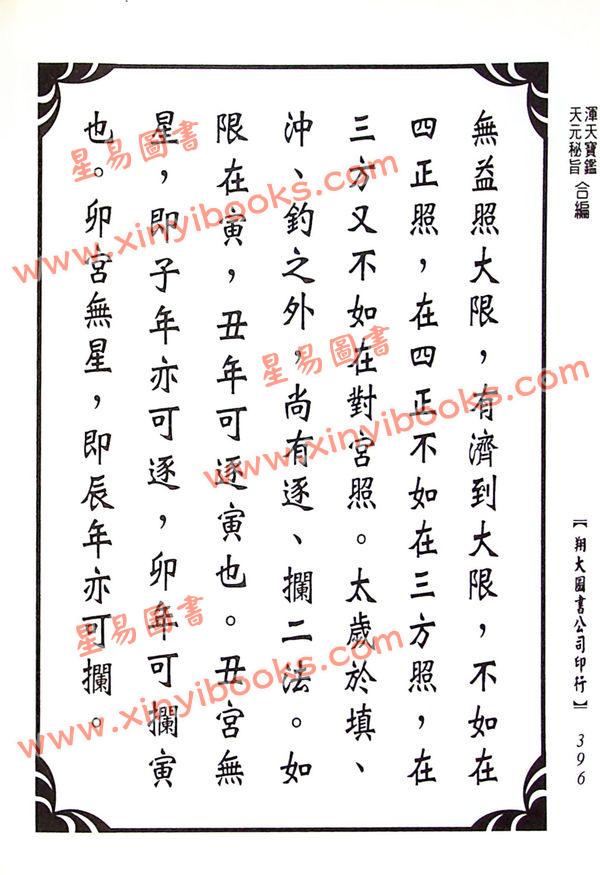 渾天寶鑑
天元秘旨 合編
無益照大限，有濟到大限，不如在
四正照，在四正不如在三方照，在
三方又不如在對宮照。太歲於填、
沖、釣之外，尚有逐、攔二法。如
限在寅，丑年可逐寅也。丑宮無
星，即子年亦可逐，卯年可攔寅
也。卯宮無星，即辰年亦可攔。
【翔大圖書公司印行】 396
星易圖書
www.xinyibooks.com
星易圖書
www.xinyibooks.com
星易圖書
www.xinyibooks.com